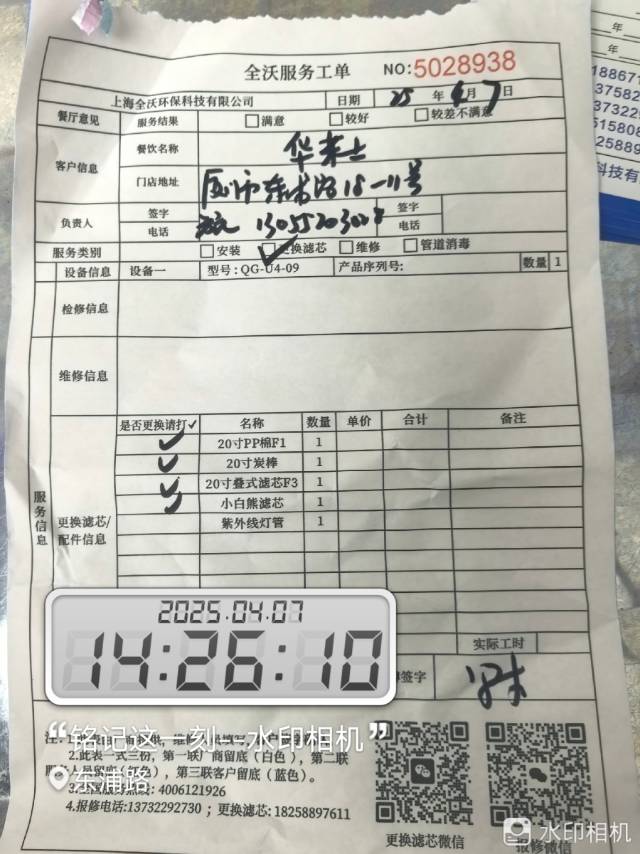 全沃服务工单 NO:5028938
上海全沃环保科技有限公司 日期 25 年 4月7日
餐厅意见 服务结果 □满意 □较好 □较差不满意
客户信息 餐饮名称 华莱士
门店地址 厦门市东浦路18-11号
负责人 签字 签字
电话 13055203028 电话
服务类别 □安装 ☑更换滤芯 □维修 □管道消毒
设备信息 设备一 型号:QG-U4-09 产品序列号: 数量 1
检修信息
维修信息
服务信息
更换滤芯/配件信息
是否更换请打✓ 名称 数量 单价 合计 备注
✓ 20寸PP棉F1 1
✓ 20寸炭棒 1
✓ 20寸叠式滤芯F3 1
✓ 小白熊滤芯 1
紫外线灯管 1
实际工时
签字
2025.04.07
14:26:10
“铭记这一刻一水印相机”
东浦路
2.此表一式三份,第一联厂商留底(白色),第二联
第三联客户留底(蓝色)。
热线:4006121926
4.报修电话:13732292730;更换滤芯:18258897611
更换滤芯微信 报修微信
水印相机
年
年
18867
13758
13732
科技有